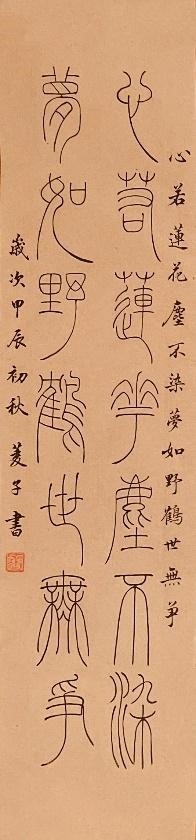 心若蓮花塵不染夢如野鶴世無爭
心若蓮華塵不染
夢如野鶴世無爭
歲次甲辰初秋 菱子書